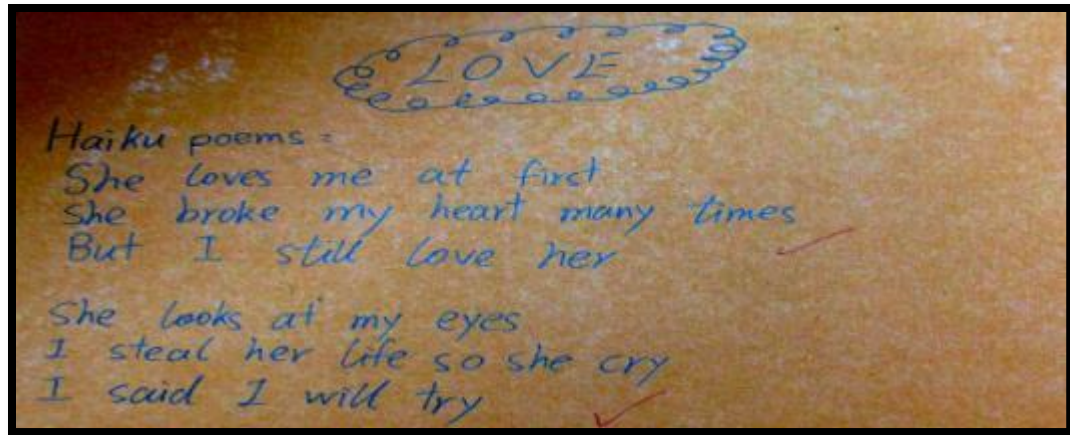 LOVE
Haiku poems =
She loves me at first
She broke my heart many times
But I still love her
She looks at my eyes
I steal her life so she cry
I said I will try